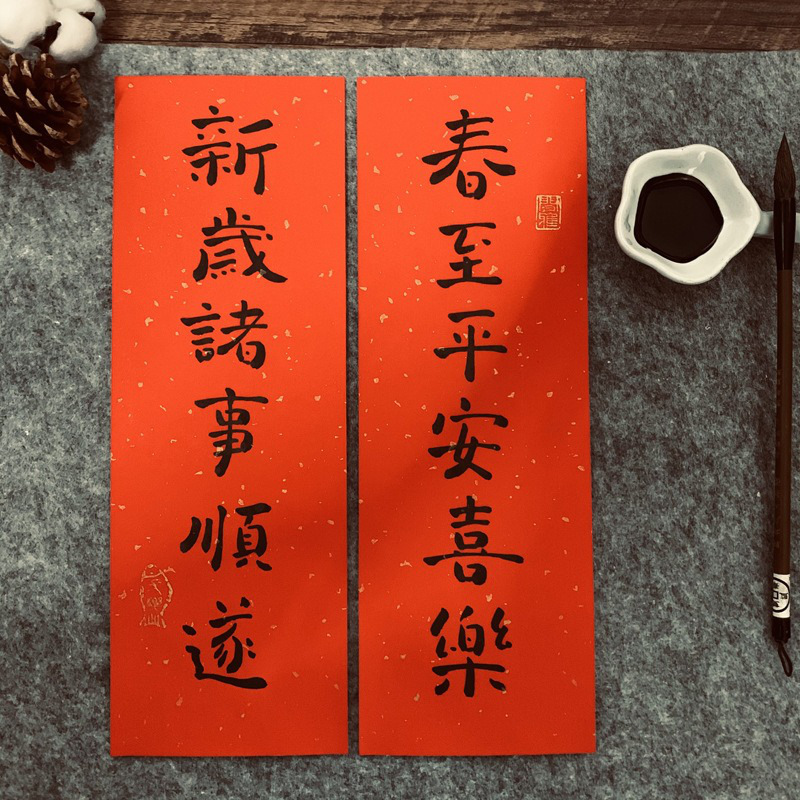 春至平安喜樂
新歲諸事順遂